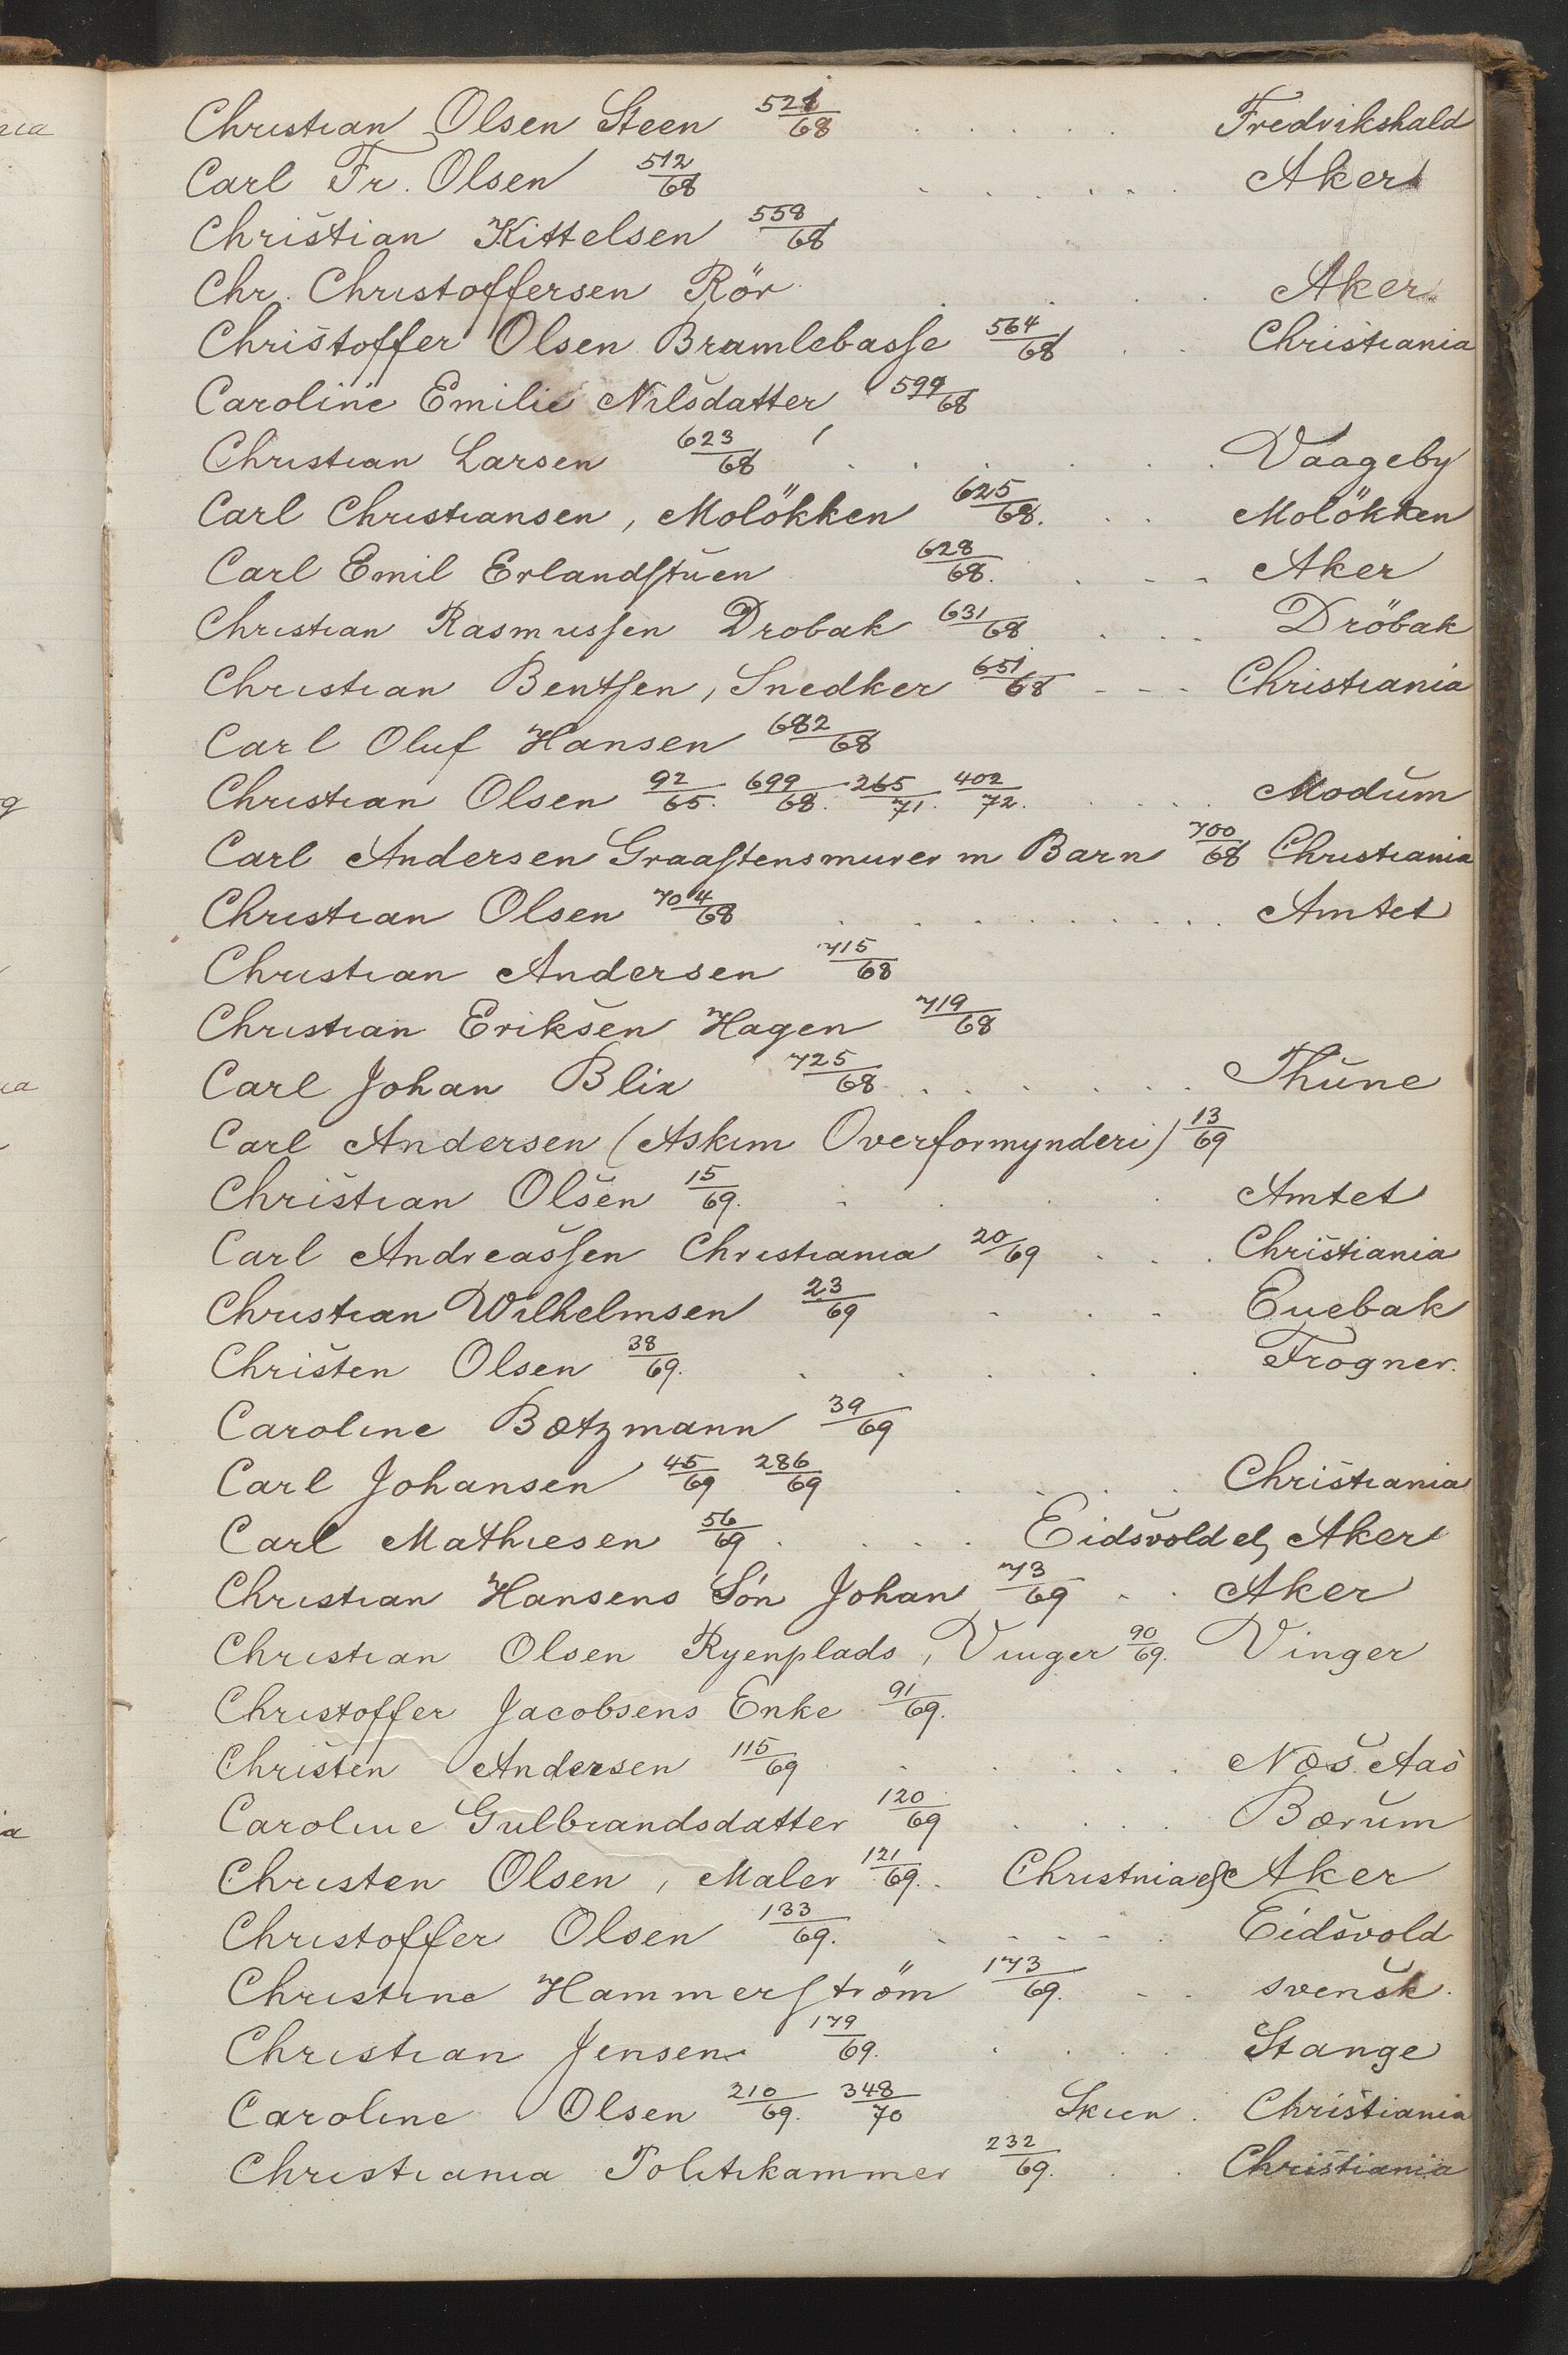 Christian Olsen Steen 521/68 . . . . . Fredrikshald
Carl Fr. Olsen 512/68 . . . . . Aker
Christian Kittelsen 558/68
Chr. Christoffersen Rör . . . Aker
Christoffer Olsen Bramlebasse 564/68 . . Christiania
Caroline Emilie Nilsdatter 599/68
Christian Larsen 623/68 . . . . . . Vaageby
Carl Christiansen, Molökken 625/68. . . Molökken
Carl Emil Erlandstuen 628/68. . - - Aker
Christian Rasmussen Drobak 631/68 . . . Dröbak
Christian Bentsen, Snedker 651/68 - - - Christiania
Carl Oluf Hansen 682/68
Christian Olsen 92/65. 699/68. 265/71. 402/72. . . . . Modum
Carl Andersen Graastensmurer m Barn 700/68 Christiania
Christian Olsen 704/68 . . . . . . . . Amtet
Christian Andersen 715/68
Christian Eriksen Hagen 719/68
Carl Johan Blix 725/68 . . . . . . Thune
Carl Andersen (Askim Overformynderi) 13/69
Christian Olsen 15/69. . . . . Amtet
Carl Andreassen Christiania 20/69 . . . Christiania
Christian Wilhelmsen 23/69 . . . - Enebak
Christen Olsen 38/69. . . . . . Frogner.
Caroline Bætzmann 39/69
Carl Johansen 45/69 286/69 . . . . Christiania
Carl Mathiesen 56/69 . . . . . Eidsvold el, Aker
Christian Hansens Sön Johan 73/69 - . Aker
Christian Olsen Ryenplads, Vinger 90/69. Vinger
Christoffer Jacobsens Enke 91/69.
Christen Andersen 115/69 . . . . . Næs. Aas
Caroline Gulbrandsdatter 120/69 . . . . Bærum
Christen Olsen, Maler 121/69. . Christnia el Aker
Christoffer Olsen 133/69. . - - - . Eidsvold
Christine Hammerström 173/69. - . svensk.
Christian Jensen 179/69. . . . . Stange
Caroline Olsen 210/69. 348/70 Skien. Christiania
Christiania Politikammer 232/69. . . Christiania